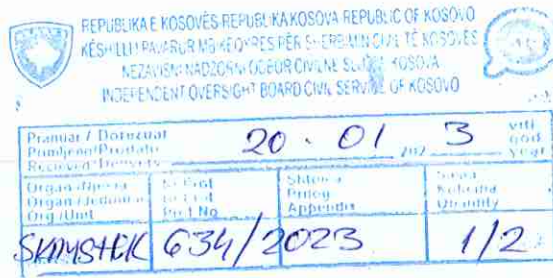 REPUBLIKA E KOSOVËS REPUBLIKA KOSOVA REPUBLIC OF KOSOVO
KËSHILLI I PAVARUR MBIKËQYRËS PËR SHËRBIMIN CIVIL TË KOSOVËS
NEZAVISNI NADZORNI ODBOR CIVILNE SLUŽBE KOSOVA
INDEPENDENT OVERSIGHT BOARD CIVIL SERVICE OF KOSOVO
Pranuar / Dorëzuar
Primljeno/Predato
Recieved/Delivery
20 . 01 202 3
viti
god.
year
Organ / Njësia
Organ / Jedinica
Org / Unit
Nr Prot
Br Prot
Prot No
Shtojca
Prilog
Appendix
Sasia
Količina
Quantity
634/2023
1/2